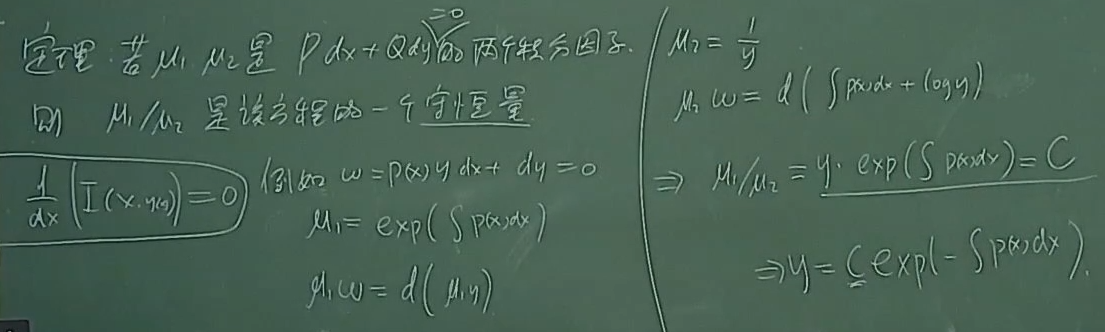 定理: 若 μ₁ μ₂ 是 Pdx + Qdy =0 的两个积分因子.
则 μ₁/μ₂ 是该方程的一个守恒量
d/dx (I(x, y(x))) = 0
例如 ω = p(x) y dx + dy = 0
μ₁ = exp(∫p(x)dx)
μ₁ω = d(μ₁y)
μ₂ = 1/y
μ₂ω = d(∫p(x)dx + log y)
⇒ μ₁/μ₂ = y · exp(∫p(x)dx) = C
⇒ y = C exp(-∫p(x)dx).